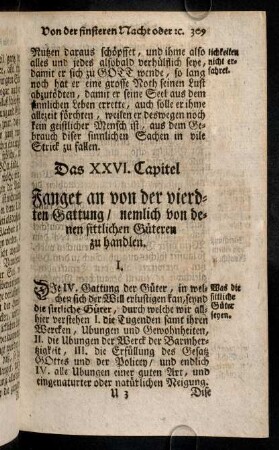 Von der finsteren Nacht oder ic. 309
Nutzen daraus schöpffet, und ihme also
alles und jedes alsobald verhülflich seye,
damit er sich zu GOTT wende, so lang
noch hat er eine grosse Noth seinen Lust
abzutödten, damit er seine Seel aus dem
sinnlichen Leben errette, auch solle er ihme
allezeit förchten, weilen er deswegen noch
kein geistlicher Mensch ist, aus dem Ge-
brauch diser sinnlichen Sachen in vile
Strick zu fallen.
lichkeiten
nicht er-
fahret.
Das XXVI. Capitel
Fanget an von der vierd-
ten Gattung / nemlich von de-
nen sittlichen Güteren
zu handlen.
I.
DJe IV. Gattung der Güter, in wel-
chen sich der Will erlustigen kan, seynd
die sittliche Güter, durch welche wir all-
hier verstehen I. die Tugenden samt ihren
Wercken, Ubungen und Gewohnheiten,
II. die Ubungen der Werck der Barmher-
tzigkeit, III. die Erfüllung des Gesatz
GOttes und der Policey, und endlich
IV. alle Ubungen einer guten Art, und
eingenaturter oder natürlichen Neigung.
Was die
sittliche
Güter
seyen.
U 3 Dise